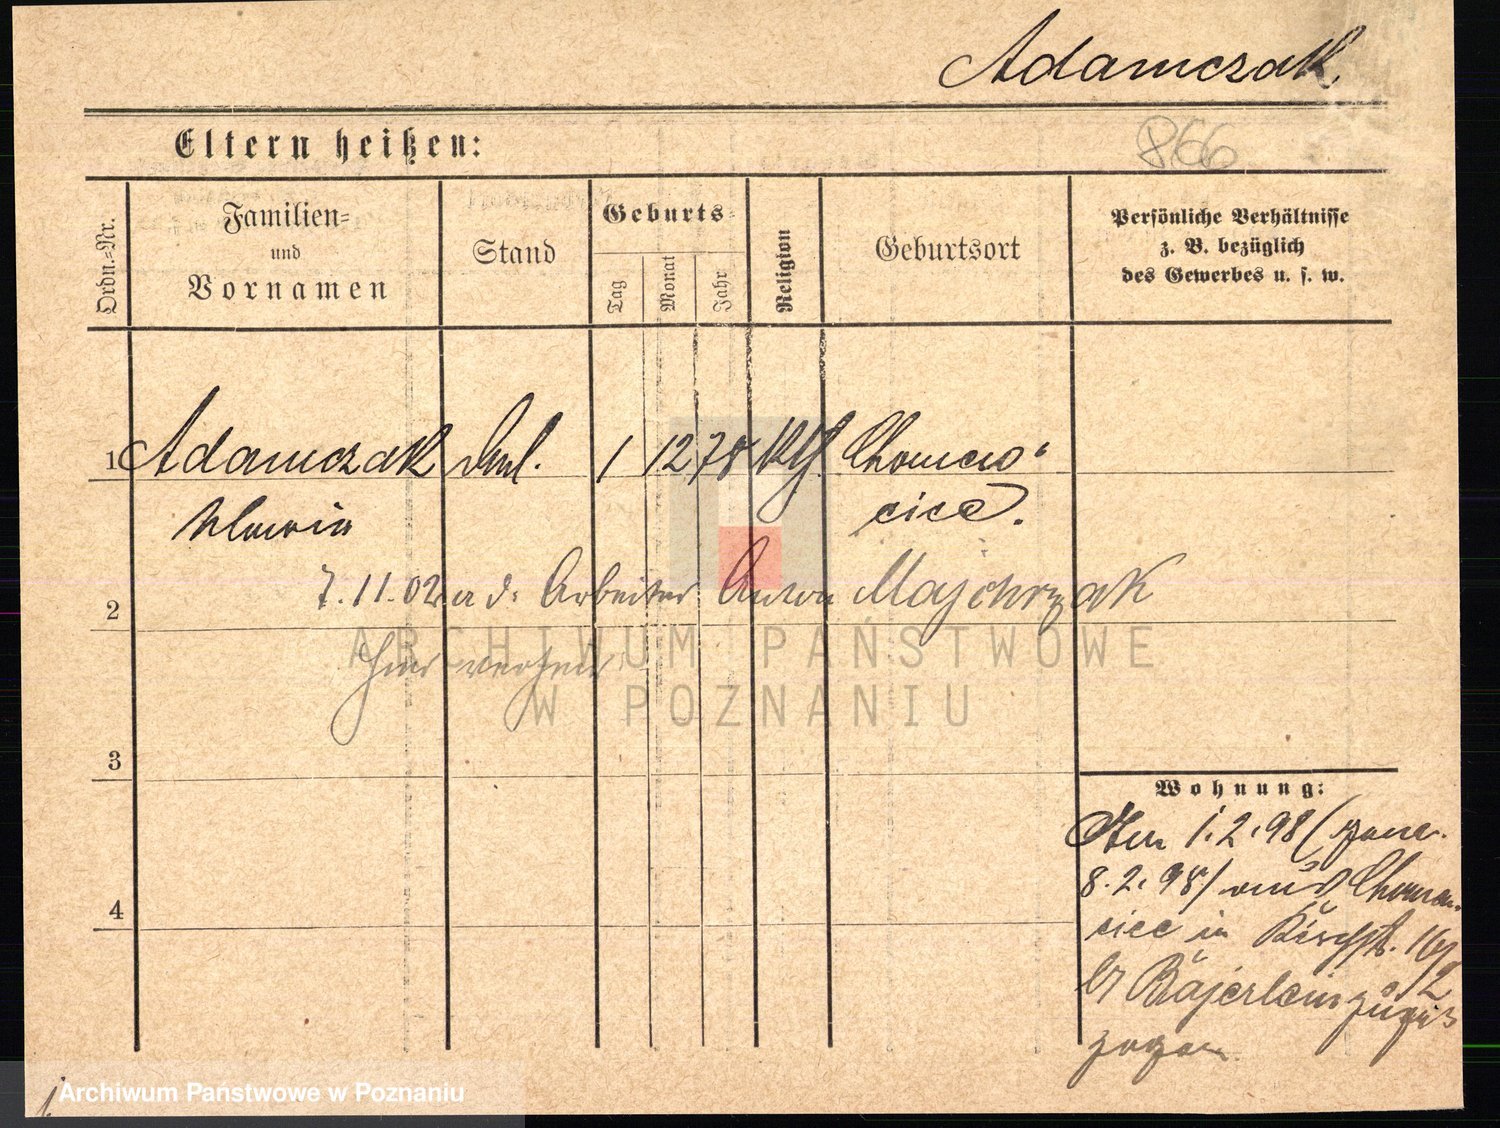 Adamczak
866
Eltern heißen:
Ordn.=Nr.
Familien=
und
Vornamen
Stand
Geburts=
Tag
Monat
Jahr
Religion
Geburtsort
Persönliche Verhältnisse
z. B. bezüglich
des Gewerbes u. s. w.
1 Adamczak 1 12 78 kth. Chomen
cice.
7.11.02 a d. Arbeiter Anton Majchrzak
2
hier verheir
ARCHIWUM PAŃSTWOWE
W POZNANIU
3
Wohnung:
1.2.98 (
8.2.98/ aus Chomen
cice in 16/
12
b/ Bajerlein zuge
zogen
4
Archiwum Państwowe w Poznaniu